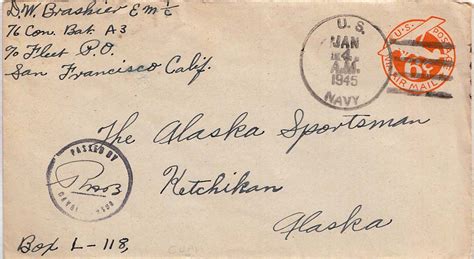 D.W. Brashier E M 1/c
76 Con. Bat. A3
℅ Fleet P.O.
San Francisco Calif.
U. S.
JAN
4
A.M.
1945
NAVY
U.S. POSTAGE
6¢
VIA AIR MAIL
The Alaska Sportsman
Ketchikan
Alaska
PASSED BY
NAVAL CENSOR
Box L-118,